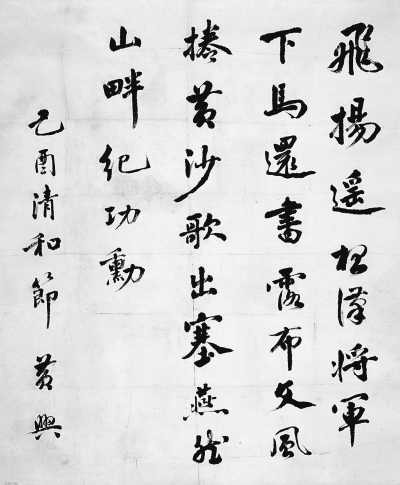 飛揚遥想漢將軍
下馬還書露布文風
捲黄沙歌出塞燕然
山畔紀功勳
乙酉清和節 黄興